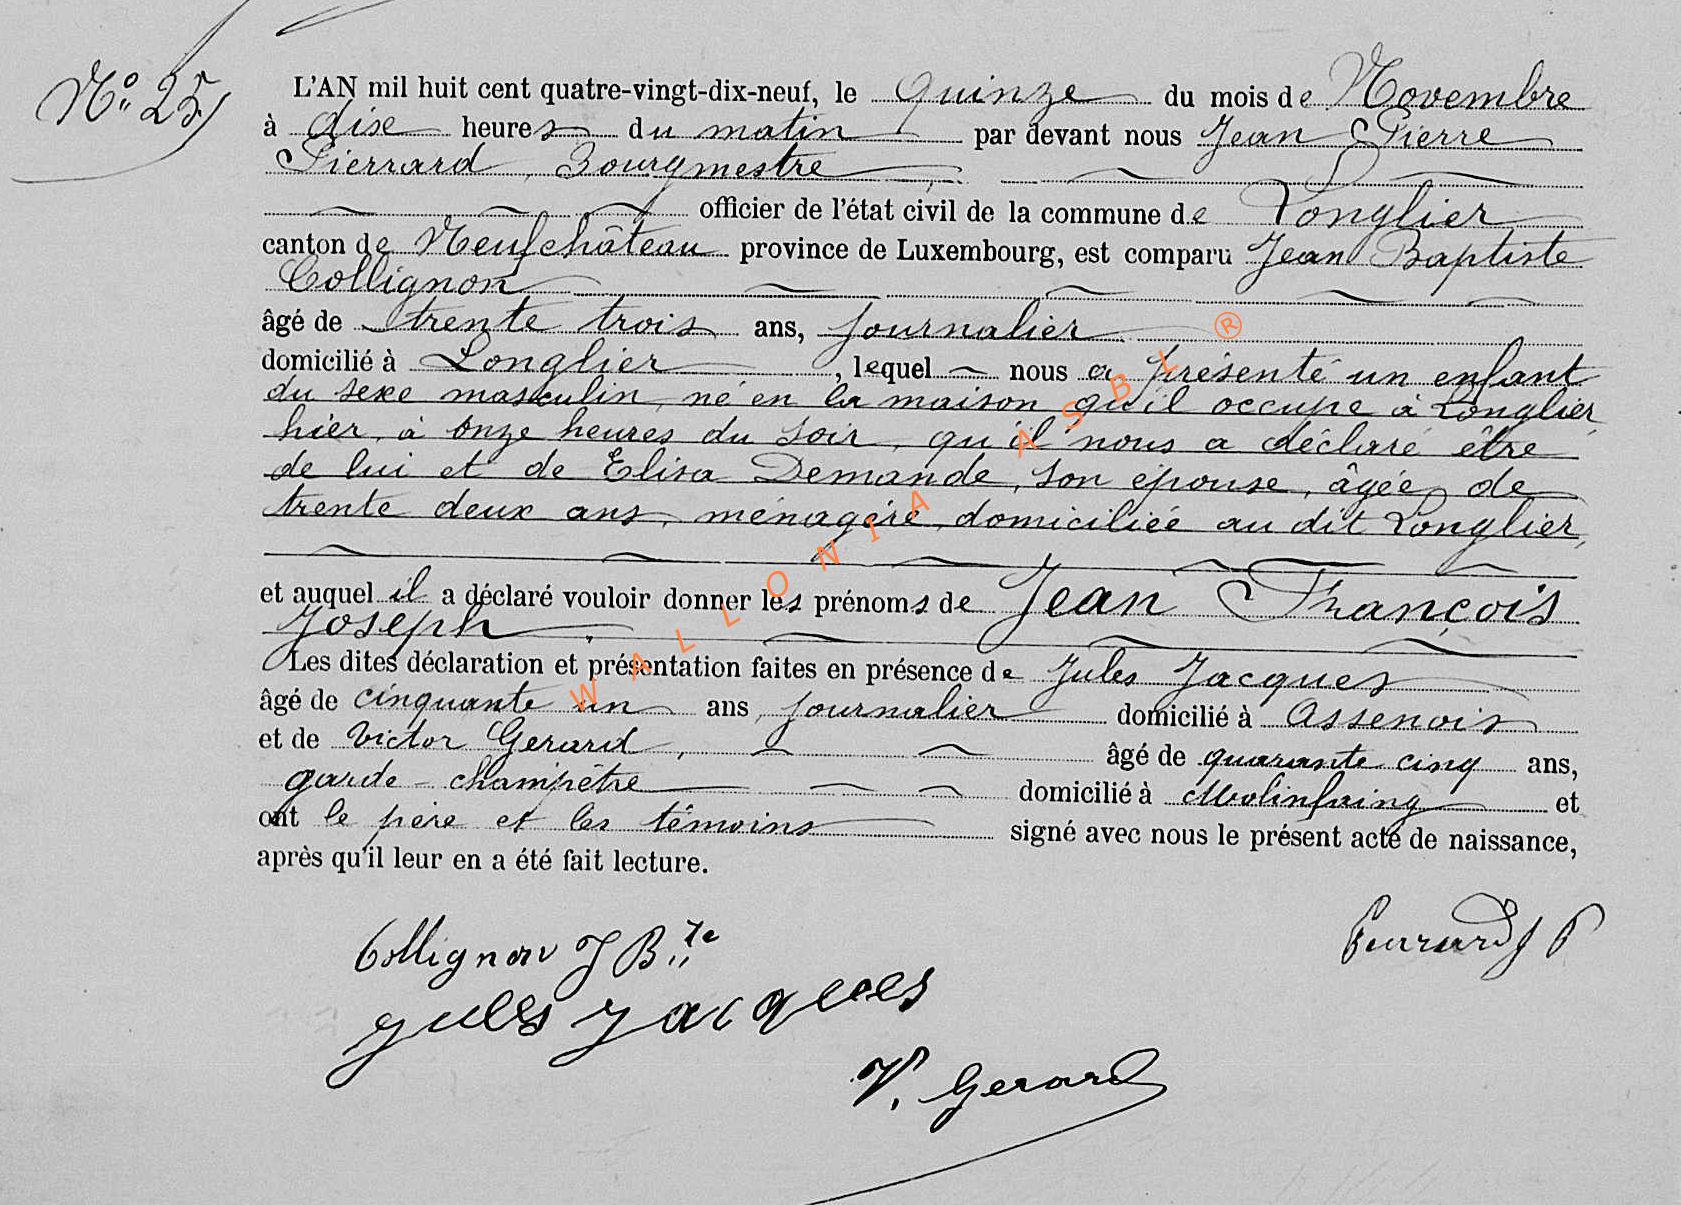 N° 25
L'AN mil huit cent quatre-vingt-dix-neuf, le quinze du mois de Novembre
à dix heures du matin par devant nous Jean Pierre
Pierrard, Bourgmestre
officier de l'état civil de la commune de Longlier
canton de Neufchâteau province de Luxembourg, est comparu Jean Baptiste
Collignon
âgé de trente trois ans, journalier
domicilié à Longlier, lequel nous a présenté un enfant
du sexe masculin, né en la maison qu'il occupe à Longlier,
hier, à onze heures du soir, qu'il nous a déclaré être
de lui et de Elisa Demande, son épouse, âgée de
trente deux ans, ménagère, domiciliée au dit Longlier,
et auquel il a déclaré vouloir donner les prénoms de Jean François
Joseph.
Les dites déclaration et présentation faites en présence de Jules Jacques
âgé de cinquante un ans, journalier domicilié à Assenois
et de Victor Gerard, âgé de quarante cinq ans,
garde-champêtre domicilié à Molinfaing et
ont le père et les témoins signé avec nous le présent acte de naissance,
après qu'il leur en a été fait lecture.
Collignon J Bte
Pierrard J P
Jules Jacques
V. Gerard
WALLONIA ASBL ®